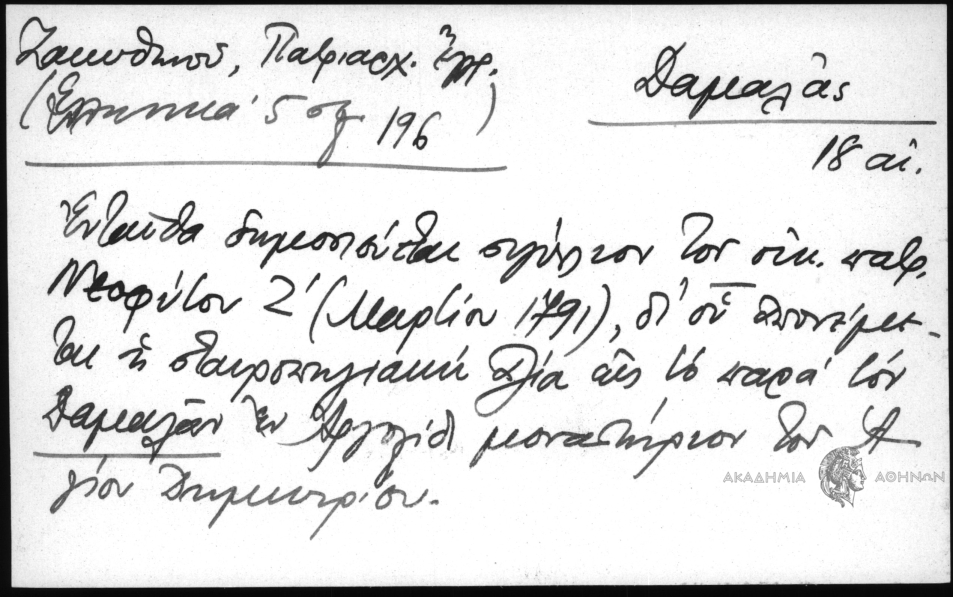 Ζακυθηνοῦ, Πατριαρχ. Ἔγγρ.
(Ἑλληνικά 5 σελ. 196)
Δαμαλᾶς
18 αἰ.
Ἐνταῦθα δημοσιεύεται σιγίλλιον τοῦ οἰκ. πατρ.
Νεοφύτου Ζ' (Μαρτίου 1791), δι' οὗ ἀπονέμε-
ται ἡ σταυροπηγιακή ἀξία εἰς τό παρά τόν
Δαμαλᾶν ἐν Ἀργολίδι μοναστήριον τοῦ Ἁ-
γίου Δημητρίου.
ΑΚΑΔΗΜΙΑ ΑΘΗΝΩΝ